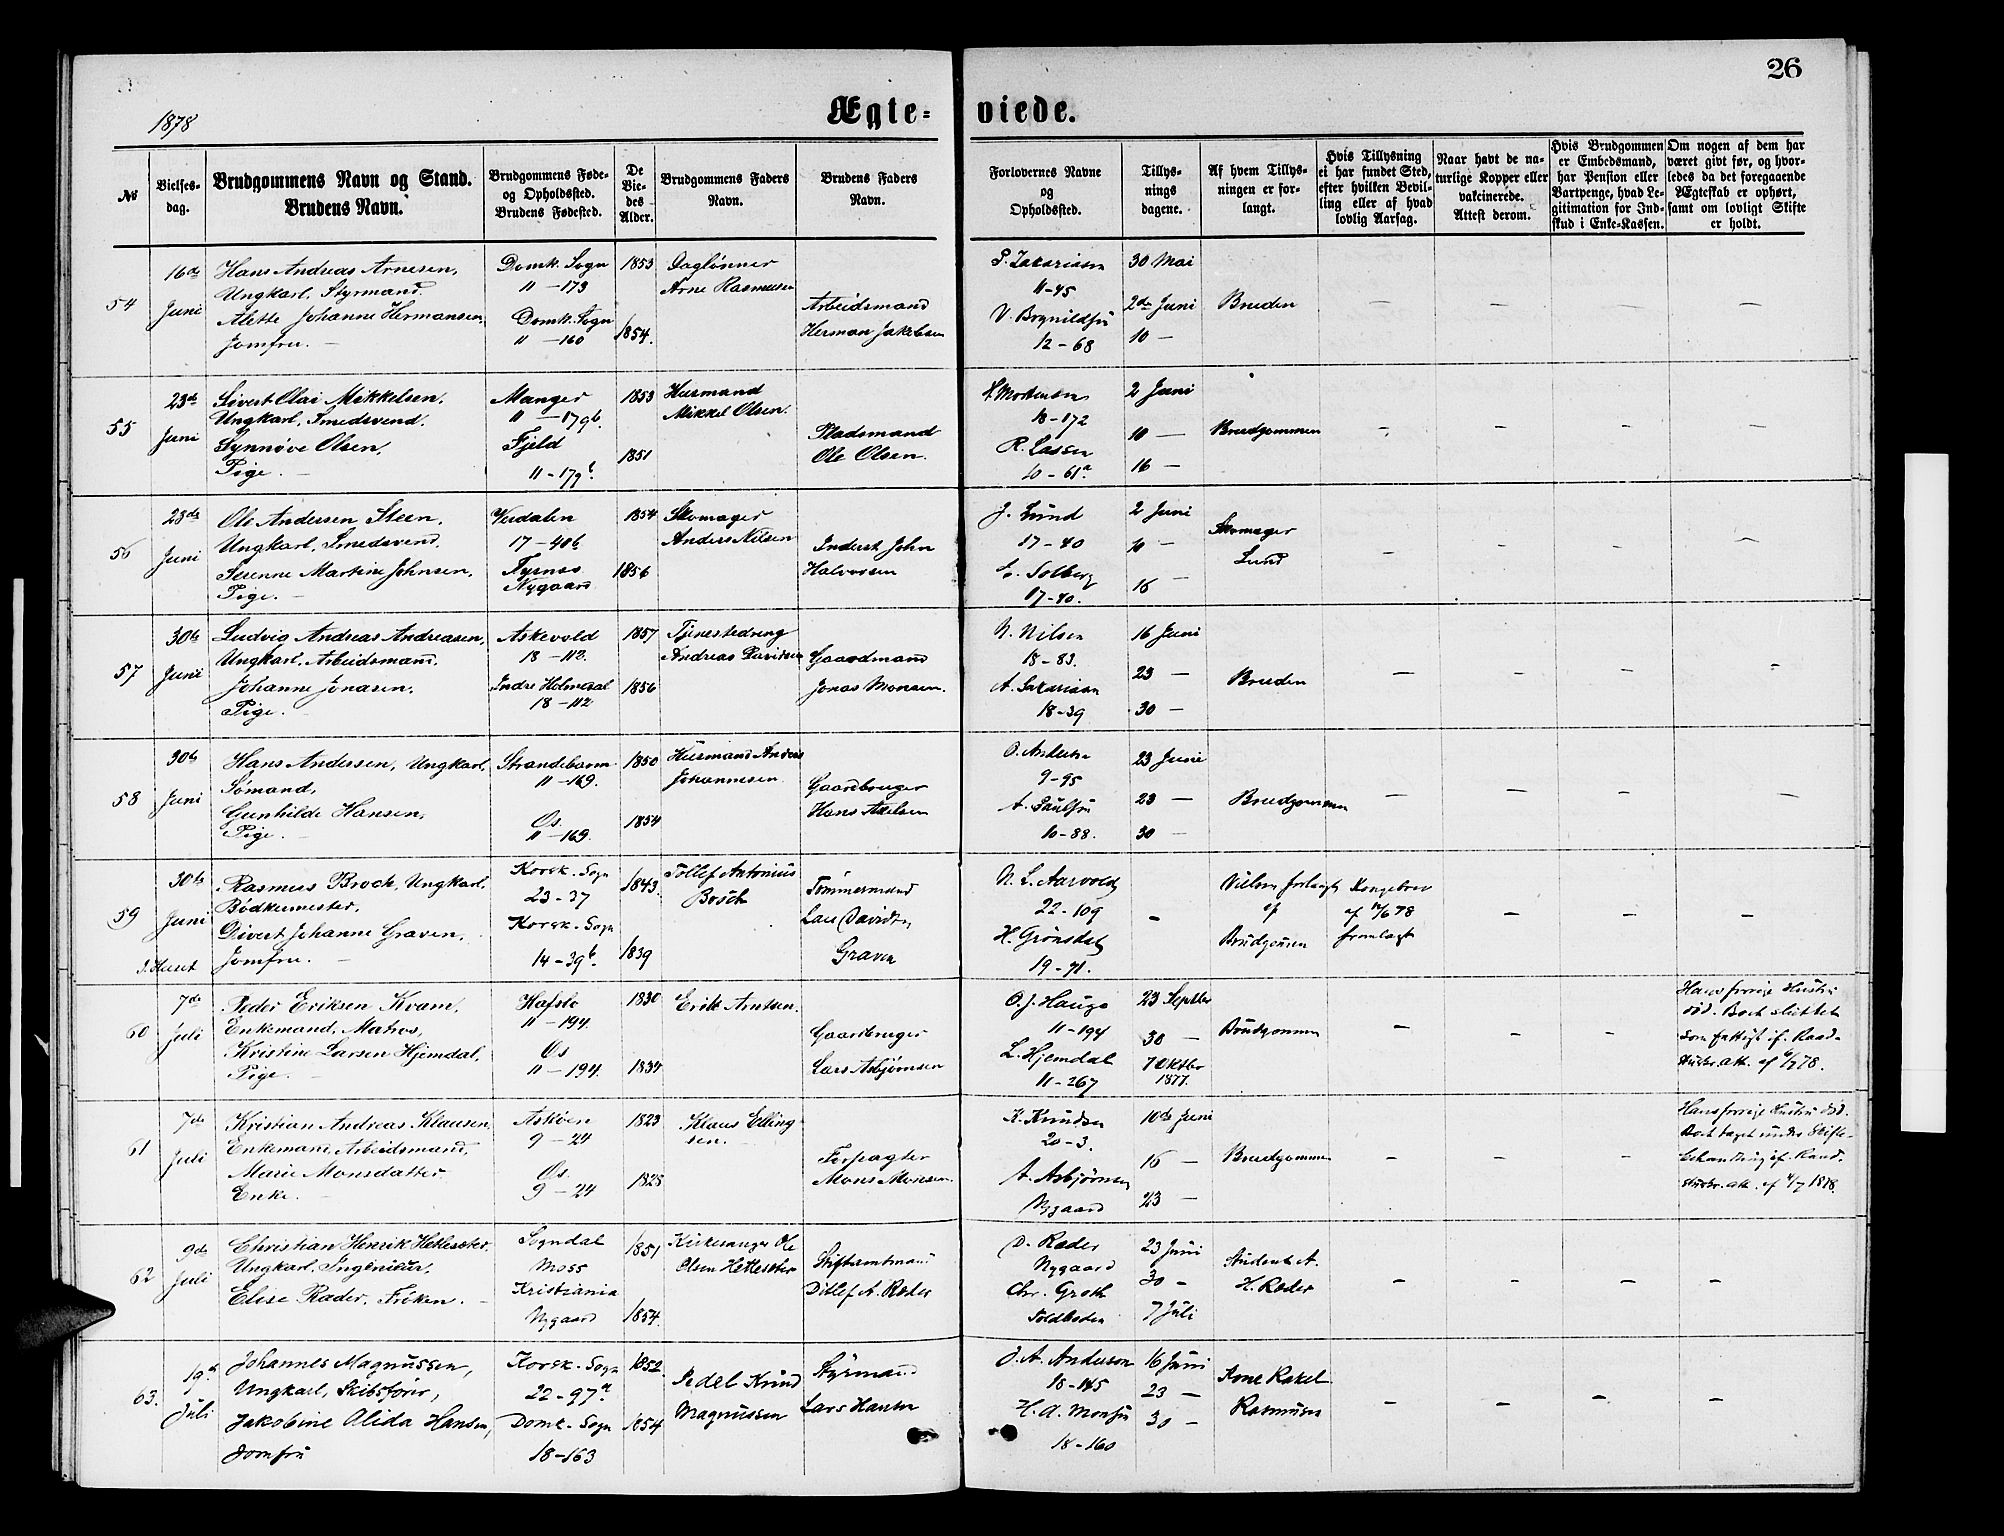 26
1878
Ægteviede.
No
Vielsesdag.
Brudgommens Navn og Stand.
Brudens Navn.
Brudgommens Føde-
og Opholdssted.
Brudens Fødested.
De
Vie-
des
Alder.
Brudgommens Faders
Navn.
Brudens Faders
Navn.
Forlovernes Navne
og
Opholdssted.
Tillys-
nings
dagene.
Af hvem Tillys-
ningen er for-
langt.
Hvis Tillysning
ei har fundet Sted,
efter hvilken Bevil-
ling eller af hvad
lovlig Aarsag.
Naar havt de na-
turlige Kopper eller
vakcinerede.
Attest derom.
Hvis Brudgommen
er Embedsmand,
har Pension eller
Vartpenge, hvad Le-
gitimation for Ind-
skud i Enke-Kassen.
Om nogen af dem har
været givt før, og hvor-
ledes da det foregaaende
Ægteskab er ophørt,
samt om lovligt Skifte
er holdt.
54
16de
Juni
Hans Andreas Arnesen,
Ungkarl, Styrmand.
Alette Johanne Hermansen,
Jomfru. —
Domk. Sogn
11 - 173
Domk. Sogn
11 - 160
1853
1854.
Daglønner
Arne Rasmusen
Arbeidsmand
Herman Jakobsen
P. Zakariasen
11-45
12-68
30 Mai
2den Juni
10 —
Bruden
55
23de
Juni
Sivert Olai Mikkelsen,
Ungkarl, Smedsvend.
Synnøve Olsen,
Pige. —
Manger
11 - 179b.
Fjeld
11-179b.
1853
1851
Husmand
Mikkel Olsen.
Pladsmand
Ole Olsen.
Mortensen
18-172
R. Lassen
10-61a.
2 Juni
10 —
16 —
Brudgommen
56
23de
Juni
Ole Andersen Steen,
Ungkarl, Smedsvend.
Serenne Martine Johnsen,
Pige. —
Verdalen
17-40b
Nygaard
1854
1856
Skomager
Anders Nilsen
Inderst John
Halvorsen
J. Lund
17-40
E. Solberg
17-40.
2 Juni
10 —
16 —
Skomager
Lund
57
30te
Juni
Ludvig Andreas Andreasen,
Ungkarl, Arbeidsmand.
Johanne Jonasen.
Pige. —
Askevold
18-112.
Indre Holmedal
18-112
1857
1856
Tjenestedreng
Andreas Davidsen
Gaardmand
Jonas Monsen.
N. Nilsen
18-83.
A. Zakariasen
18-39
16 Juni
23 —
30 —
Bruden
58
30te
Juni
Hans Andersen, Ungkarl,
Sømand,
Gunhilde Hansen,
Pige. —
Strandebarm
11-169.
Os.
11-169.
1850
1854
Husmand Anders
Johannesen
Gaardbruger
Hans Axelsen
9-95
10-88.
23 Juni
23 —
30 —
Brudgommen
59
30te
Juni
Rasmus Broch, Ungkarl,
Bødkermester.
Sivert Johanne Graven,
Jomfru. —
Korsk. Sogn
23-37
Korsk. Sogn
14-39b.
1843.
1839
Tollef Antonius
Broch
Tømmermand
Lars Davidsen
Graven
N. L. Aarvold
22-109
H. Grønsdal
19-71.
Vielsen forlangt
af
Brudgommen
Kongebrev
af 12/6 78
fremlagt
60
7de
Juli
Peder Eriksen Kvam,
Enkemand, Matros,
Kristine Larsen Hjemdal,
Pige. —
Hafslo
11-194.
Os
11-194.
1830
1834
Erik Arntsen.
Gaardbruger
Lars Asbjørnsen
O. J. Hauge
11-194
L. Hjemdal
11-267
23 Septbr
30 —
7 Oktbr
1877.
Brudgommen
Hans forrige Hustru
død. Boet sluttet
som fattigt if. Raad-
stueskr. att. af 6/7 78.
61
7de
Juli
Kristian Andreas Klausen,
Enkemand, Arbeidsmand,
Marie Monsdatter
Enke. —
Askøen
9-24
Os.
9-24
1823
1828
Klaus Elling
sen.
Forpagter
Mons Monsen.
K. Knudsen
20-3.
A. Asbjørnsen
Nygaard
10de Juni
16 —
23 —
Brudgommen
Hans forrige Hustru død.
Boet taget under Skifte-
behandling if. Raad-
stueskr. att. af 4/7 1878.
62
9de
Juli
Christian Henrik Hetlesæter
Ungkarl, Ingeniør.
Elise Ræder, Frøken. —
Sogndal
Moss
Kristiania
Nygaard
1851
1854.
Kirkesanger Ole
Olsen Hetlesæter
Stiftsamtmand
Ditlef A. Ræder
D. Ræder
Nygaard
Chr. Greth
Toldboden
23 Juni
30 —
7 Juli
Student A.
H. Ræder
63.
19de
Juli
Johannes Magnussen,
Ungkarl, Skibsfører,
Jakobine Alida Hansen,
Jomfru
Korsk. Sogn
22-97a
Domk. Sogn
18-163
1852.
1854
Pedel Knud
Magnussen
Styrmand
Lars Hansen
J. A. Anderson
18-145
H. A. Monsen
18-160
16 Juni
23 —
30 —
Arne Rakel
Rasmusen